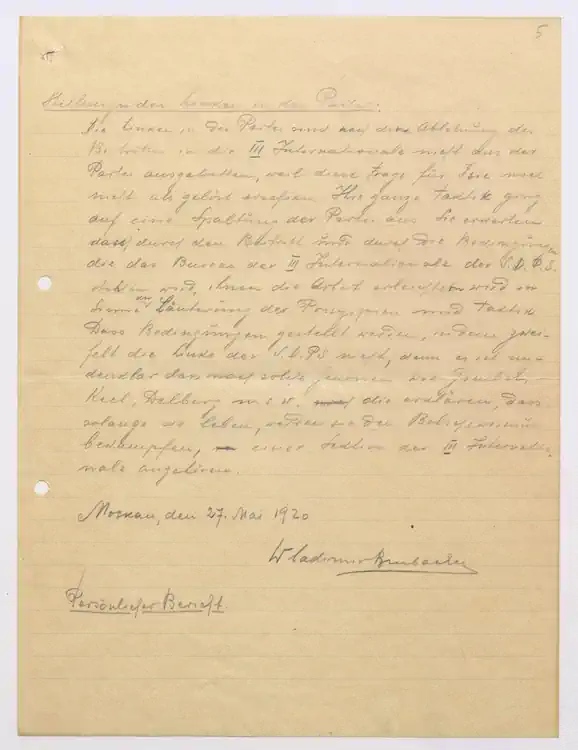 5
Stellung zu den Linken in der Partei:
Die Linken in der Partei sind nach dem Ablehnung des
Beitrittes in die III Internationale nicht aus der
Partei ausgetretten, weil diese Frage für Sie noch
nicht als gelöst erschien. Ihre ganze Taktik ging
auf eine Spaltung der Partei aus. Sie erwarten
dass durch den Beitritt und durch die Bedingungen
die das Bureau der III Internationale der S.D.P.S.
stellen wird, ihnen die Arbeit erleichtern wird im
Sinne der Läuterung des Programms und Taktik
Dass Bedingungen gestellt werden, zwei-
felt die Linke der S.D.P.S nicht, denn es ist un-
denkbar dass noch solche wie
u.s.w. die erklären, dass
solange sie leben, werden sie den Bolschewismus
bekämpfen, einer Sektion der III Internatio-
nale angehören.
Moskau, den 27. Mai 1920
Wladimir
Persönlicher Bericht.